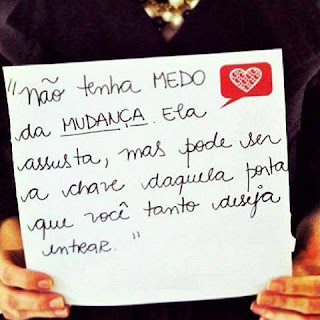 "Não tenha MEDO
da MUDANÇA. Ela
assusta, mas pode ser
a chave daquela porta
que você tanto deseja
entrar."